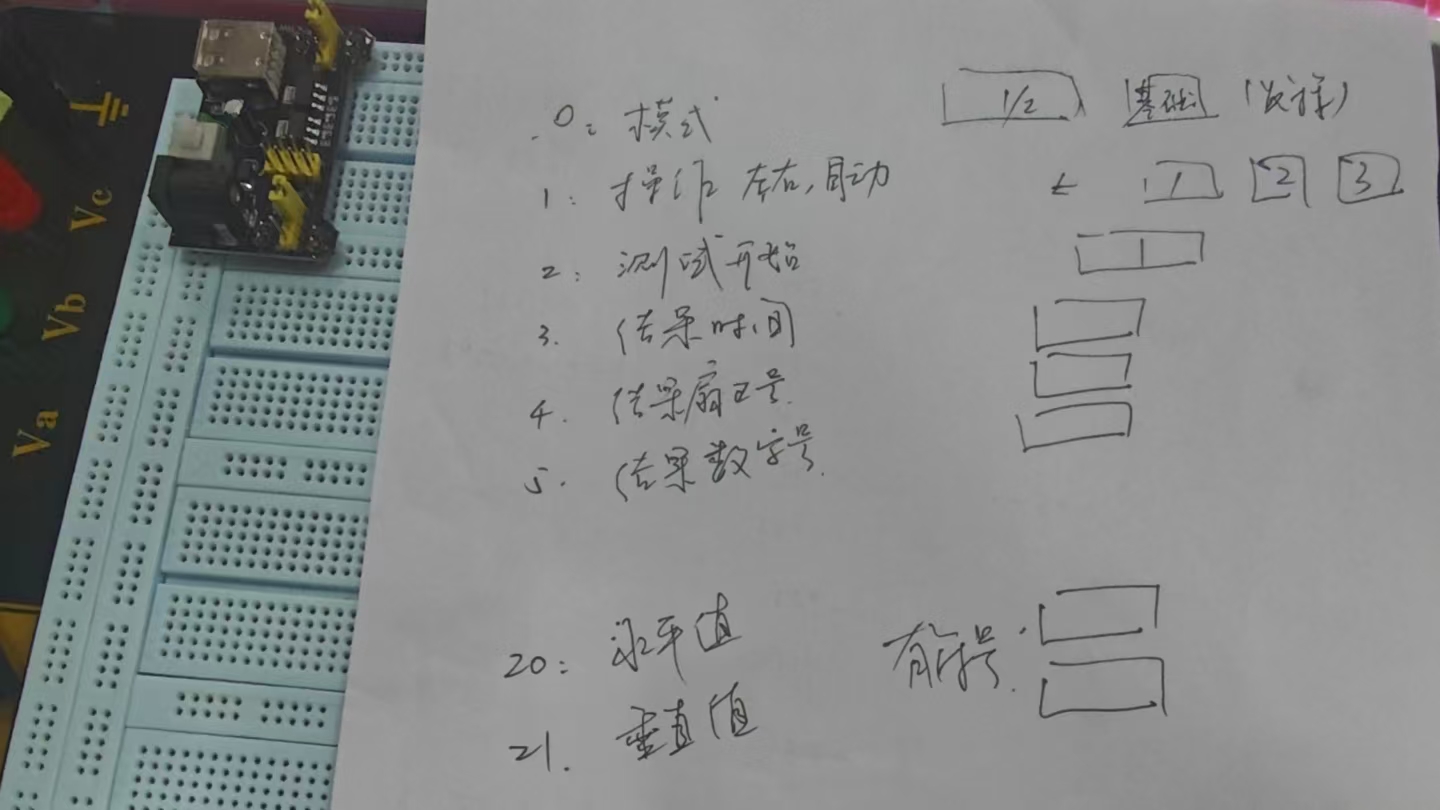 0: 模式 1/2 基础 (发挥)
1: 操作 左右,自动 ← 1 2 3
2: 测试开始 1
3. 结果时间
4. 结果扇区号.
5. 结果数字号.
20: 水平值 有符号.
21. 垂直值
Vc
Vb
Va